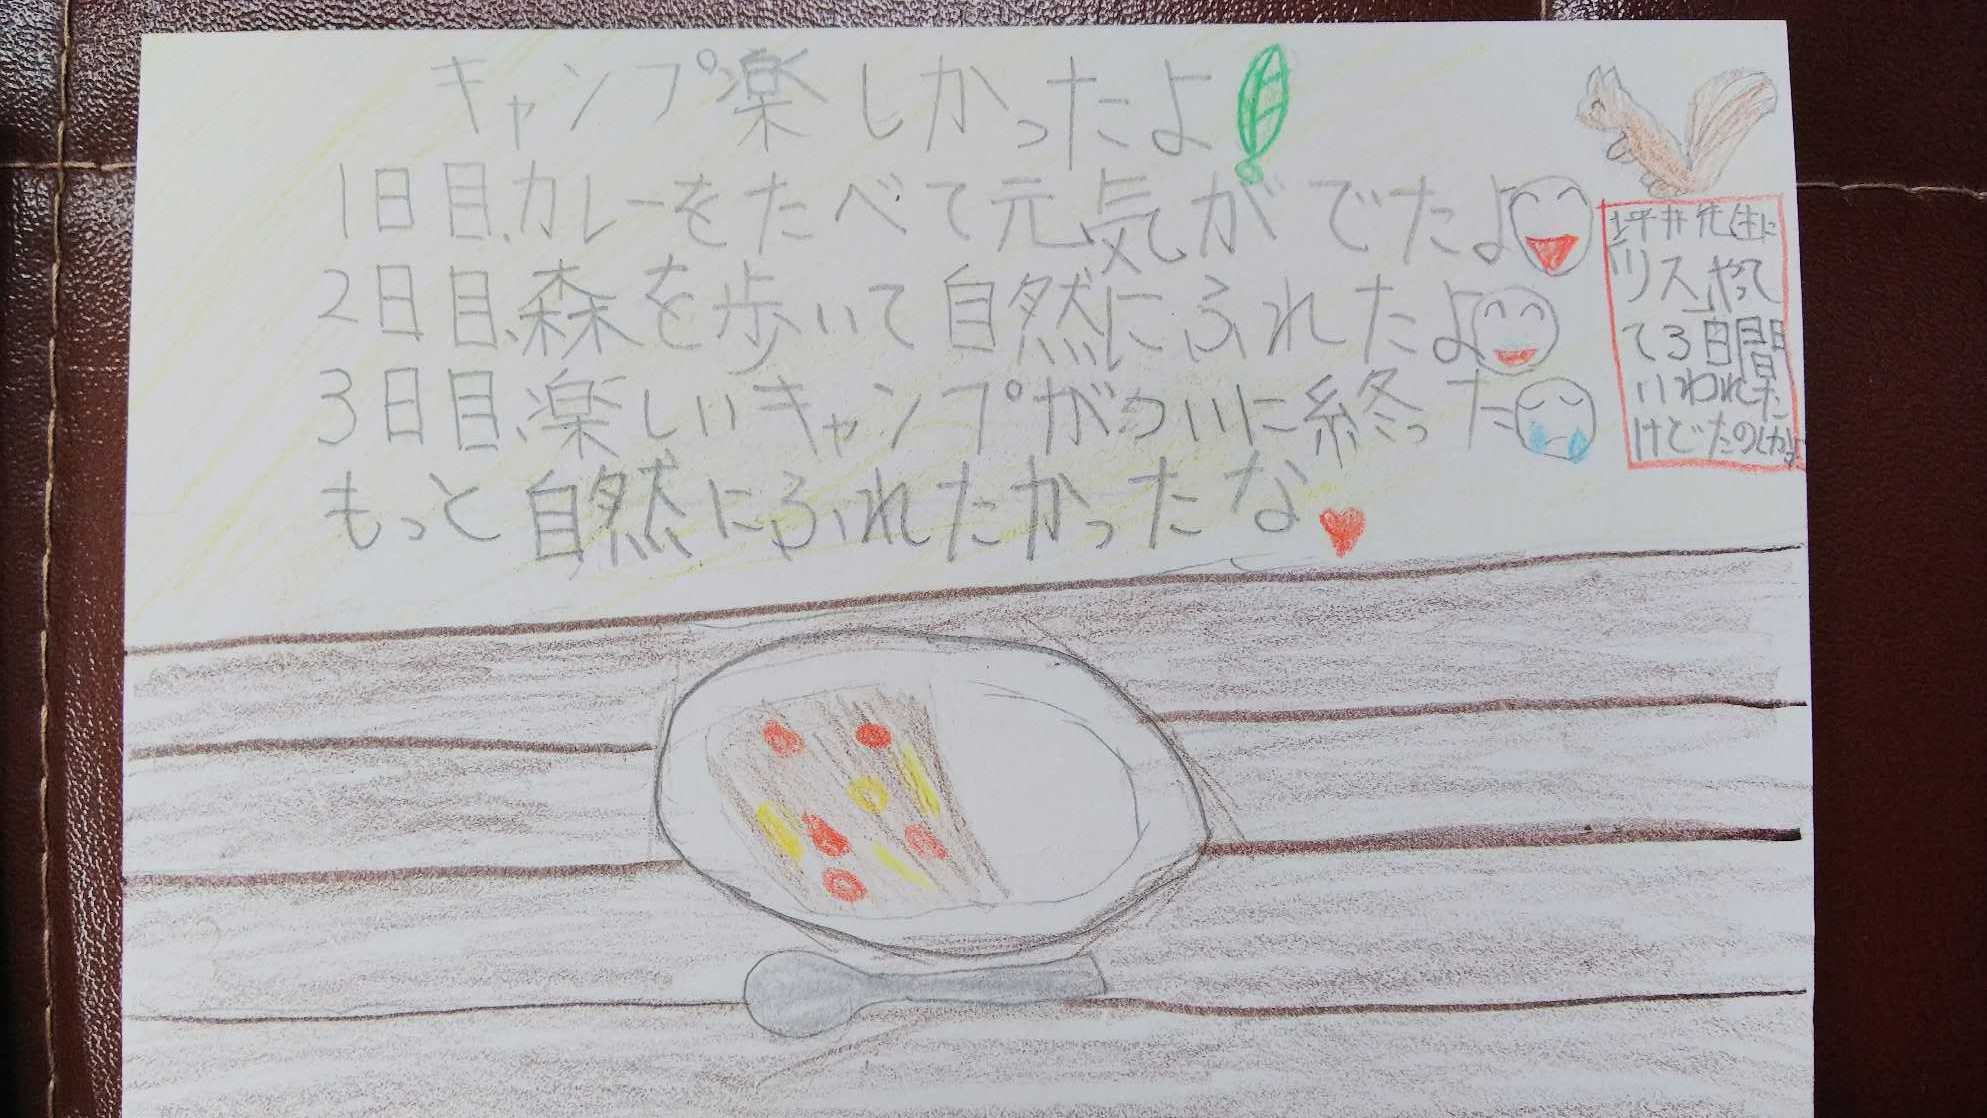 キャンプ楽しかったよ!
1日目、カレーをたべて元気がでたよ
2日目、森を歩いて自然にふれたよ
3日目、楽しいキャンプがついに終った
もっと自然にふれたかったな
坪井先生に
「リス」やって
て3日間
いわれた
けどたのしかったよ